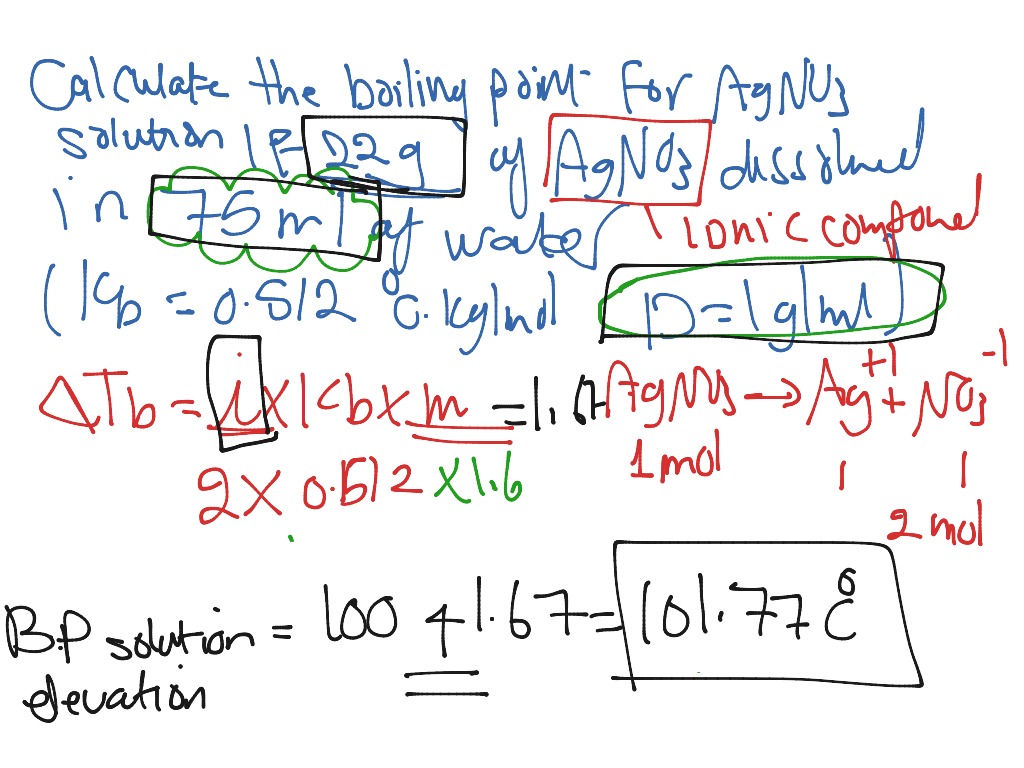 Calculate the boiling point for AgNO3
solution if 22g of AgNO3 dissolved
in 75 ml of water
ionic compound
(Kb = 0.512 °C.kg/mol D = 1g/ml)
ΔTb = i x Kb x m = 1.67
AgNO3 → Ag+1 + NO3-1
2 x 0.512 x 1.6
1 mol 1 1
2 mol
B.P solution = 100 + 1.67 = 101.77 C°
elevation